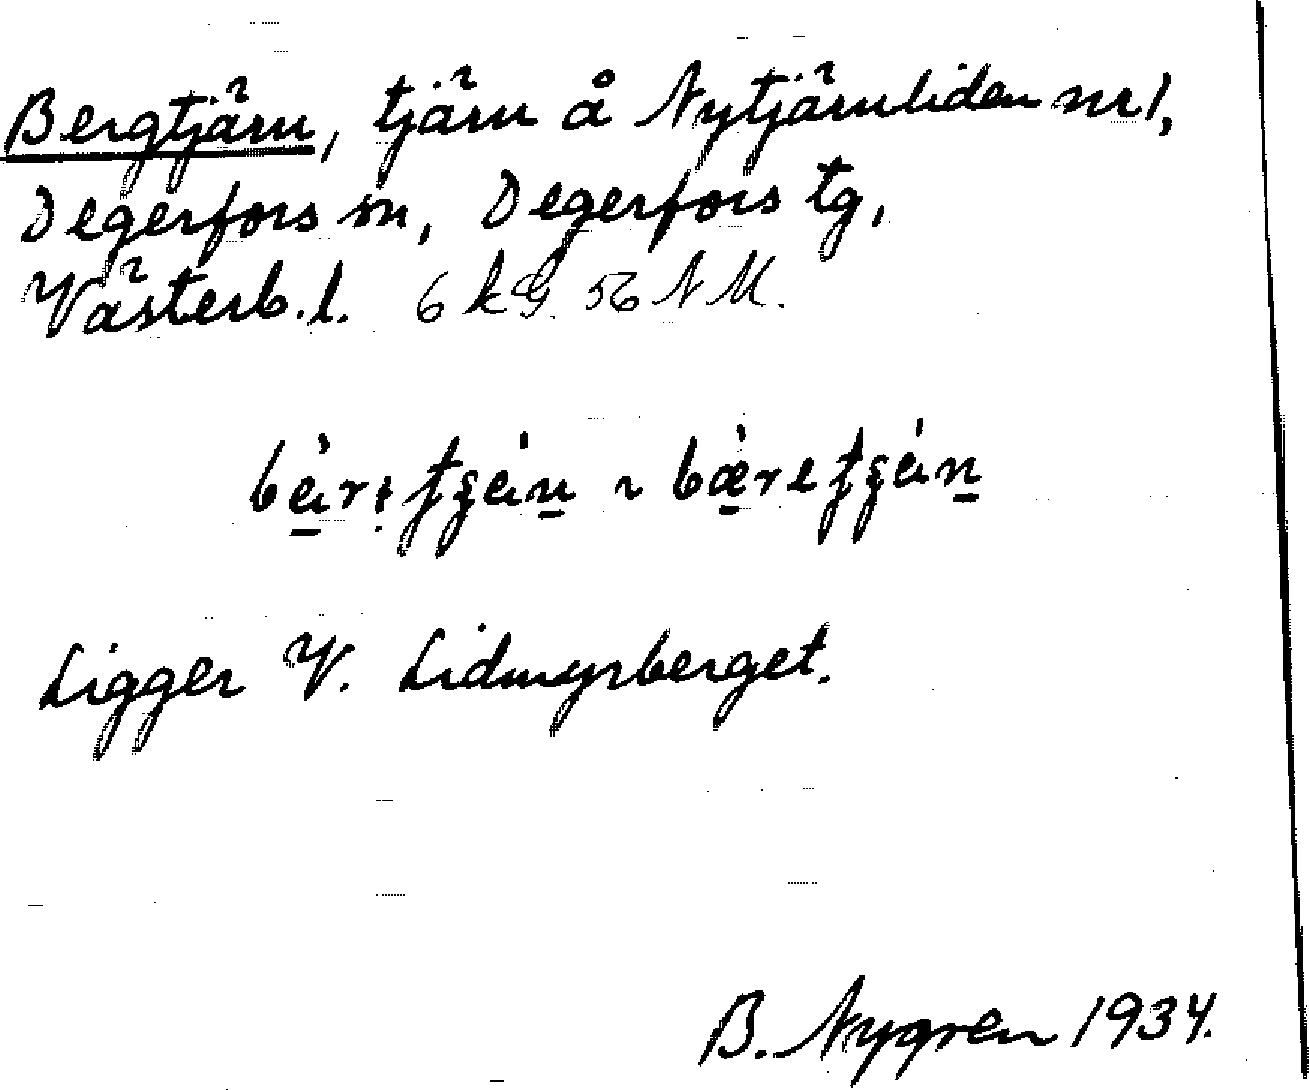 Bergtjärn, tjärn å Nytjärnliden nr 1,
Degerfors sn, Degerfors tg,
Västerb. l. 6 kG. 56 N M.
Ligger V. Lidmyrberget.
B. Nygren 1934.